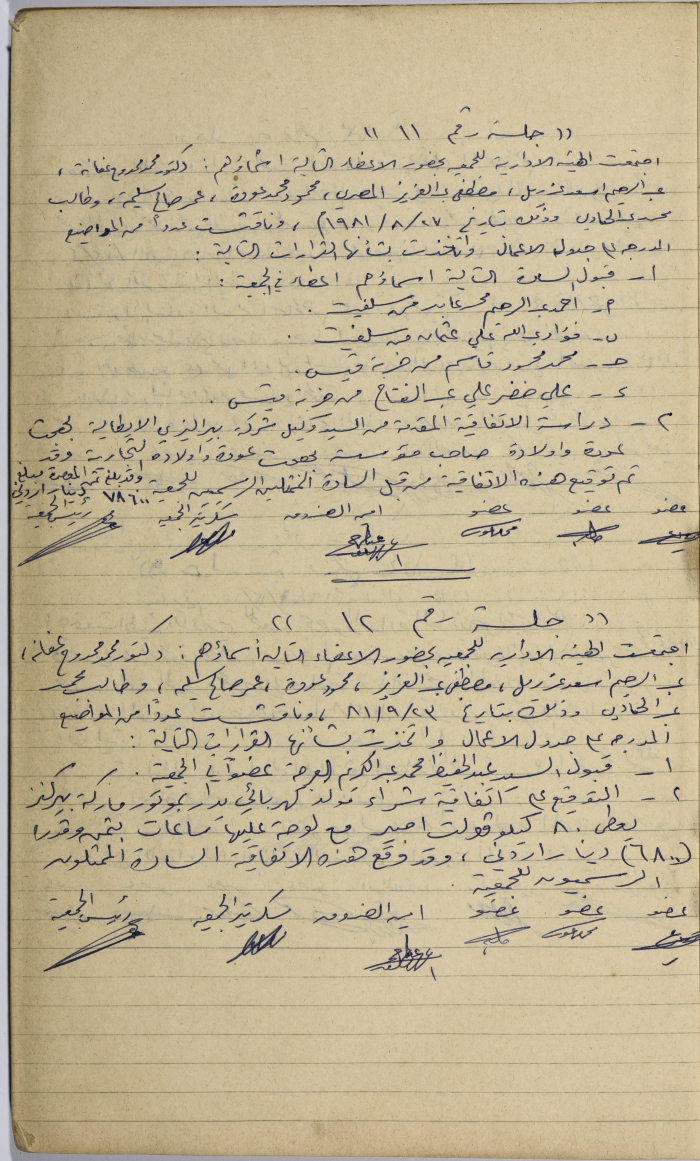 " جلسة رقم ١١ "
اجتمعت الهيئة الادارية للجمعية بحضور الاعضاء التالية اسماؤهم : دكتور محمد ممدوح عفانة ،
عبد الرحيم اسعد عزريل ، مصطفى عبد العزيز المصري ، محمود محمد عودة ، عمر صالح سليمة ، وطالب
محمد عبد الحمادي وذلك بتاريخ ٢٧ / ٨ / ١٩٨١م ، وناقشت عدداً من المواضيع
المدرجه على جدول الاعمال واتخذت بشأنها القرارات التالية :
١ – قبول السادة التالية اسماؤهم اعضاء في الجمعية :
م – احمد عبد الرحيم محمد عابد من سلفيت .
ب – فؤاد عبد الله علي عثمان من سلفيت .
حـ – محمد محمود قاسم من خربة قيس .
ء – علي خضر علي عبد الفتاح من خربة قيس .
٢ – دراسة الاتفاقية المقدمة من السيد وكيل شركة الايطالية بهجت
عودة واولاده صاحب مؤسسة بهجت عودة واولاده التجارية وقد
تم توقيع هذه الاتفاقية من قبل السادة الممثلين الرسميين للجمعية وقد بلغ ثمن المعصرة مبلغ
٧٨٦٠٠ دينار اردني
عضو عضو عضو امين الصندوق سكرتير الجمعية رئيس الجمعية
" جلسة رقم ١٢ "
اجتمعت الهيئه الاداريه للجمعيه بحضور الاعضاء التاليه أسماؤهم : دكتور محمد ممدوح عفانه ،
عبد الرحيم اسعد عزريل ، مصطفى عبد العزيز ، محمود عودة ، عمر صالح سليمه ، وطالب محمد
عبد الحمادي وذلك بتاريخ ٢٣/٩/٨١ ، وناقشت عدداً من المواضيع
المدرجه على جدول الاعمال واتخذت بشأنها القرارات التالية :
١ – قبول السيد عبد الحفيظ محمد عبد الكريم عضواً في الجمعية .
٢ – التوقيع على اتفاقية شراء مولد كهربائي يدار بموتور ماركة بيركنز
يعطي ٨٠ كيلو فولت امبير مع لوحة عليها ساعات بثمن وقدره
(٦٨٠٠) دينار اردني ، وقد وقع هذه الاتفاقية السادة الممثلون
الرسميون للجمعية .
عضو عضو عضو امين الصندوق سكرتير الجمعيه رئيس الجمعية